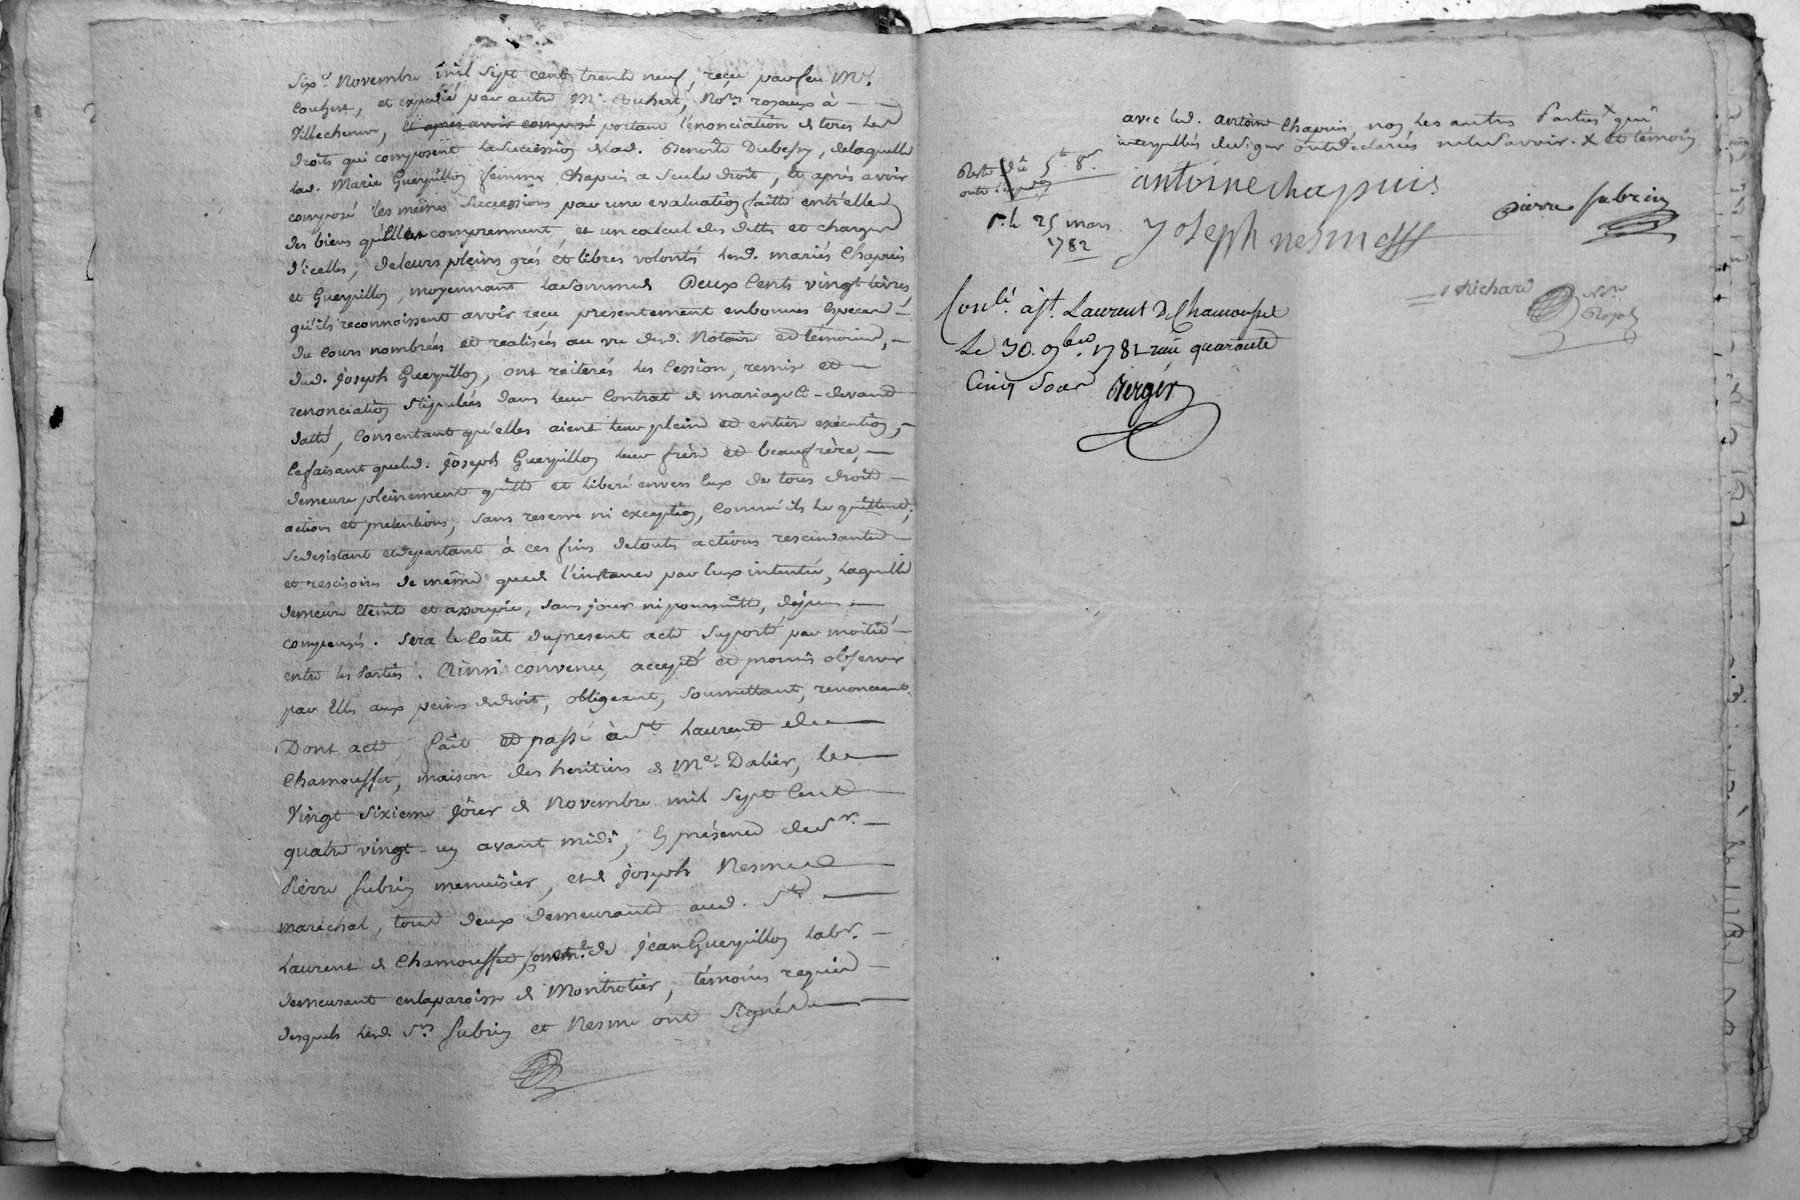 six Novembre mil sept cent trente neuf, reçu par feu Me.
Couhert, et expedié par autre Me. Couhert, Nores royaux à
Villechenève, et après avoir composé portant l'énonciation de tous les
droits qui composent la succession de lad. Benoite Dubessy, de laquelle
lad. Marie Guerpillon femme Chapuis a seule droit, et après avoir
composé les mêmes successions par une evaluation faitte entr'elles
des biens qu'elles comprennent et un calcul des dettes et charges
d'icelles, de leurs pleins grés et libres volontés lesd. mariés Chapuis
et Guerpillon, moyennant la somme de Deux Cents vingt livres
qu'ils reconnoissent avoir reçu presentement en bonnes Especes
du Cours nombrées et realisées au vu dud. Notaire et témoins,
dud. Joseph Guerpillon, ont réitérés les Cession, remise et
renonciation stipulées dans leur Contrat de mariage ci-devant
datté, Consentant qu'elles aient leur pleine et entière exécution,
Ce faisant que led. Joseph Guerpillon leur frère et beaufrère,
demeure pleinement quitte et liberé envers Eux de tous droits
actions et pretentions, sans reserve ni exception, Comme ils le quittent,
se desistant et departant à ces fins de toutes actions rescindantes
et rescisoires de même que de l'instance par Eux intentée, laquelle
demeure Eteinte et assoupie, sans jour ni poursuitte, dépens
compensés. Sera le Cout du present acte suporté par moitié
entre les Parties. Ainsi convenu, accepté et promis observer
par Elles aux peines de droit, obligeant, soumettant, renonceant.
Dont acte, fait et passé à St. Laurent de
Chamousset, maison des heritiers de Me. Dalier, le
Vingt sixieme Jour de Novembre mil sept Cent
quatre vingt-un avant midi, En présence de Sr.
Pierre Subrin menuisier, et de Joseph Nesme
maréchal, tous deux demeurants aud. St.
Laurent de Chamousset, de Jean Guerpillon labr.
demeurant en la paroisse de Montrotier, témoins requis
desquels lesd. Srs. Subrin et Nesme ont signé
avec led. antoine Chapuis, non les autres Parties X qui
interpellés de signer ont declarés ne le savoir. X et témoin
Reste dû 5
antoine chapuis
pierre subrin
r. le 25 mars
1782
Joseph nesme
Richard
Nre.
Royal
Conlé. à St. Laurent de Chamousset
Le 30. 9bre. 1781 reçu quarante
Cinq Sous Berger